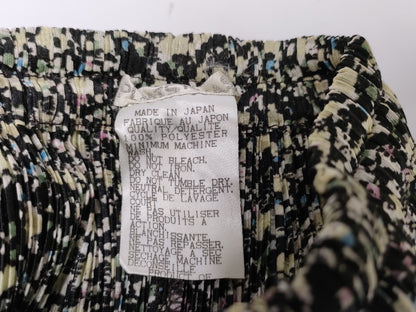 MADE IN JAPAN
FABRIQUE AU JAPON
QUALITY/QUALITE
100% POLYESTER
MINIMUM MACHINE
WASH.
DO NOT BLEACH.
DO NOT IRON.
DRY CLEAN.
DO NOT TUMBLE DRY.
NEUTRAL DETERGENT.
CYCLE DE LAVAGE
COURT.
NE PAS UTILISER
DE PRODUITS A
ACTION
BLANCHISSANTE.
NE PAS REPASSER.
NETTOYAGE A SEC.
SECHAGE MACHINE
DECONSEILLE
PRODUIT DE